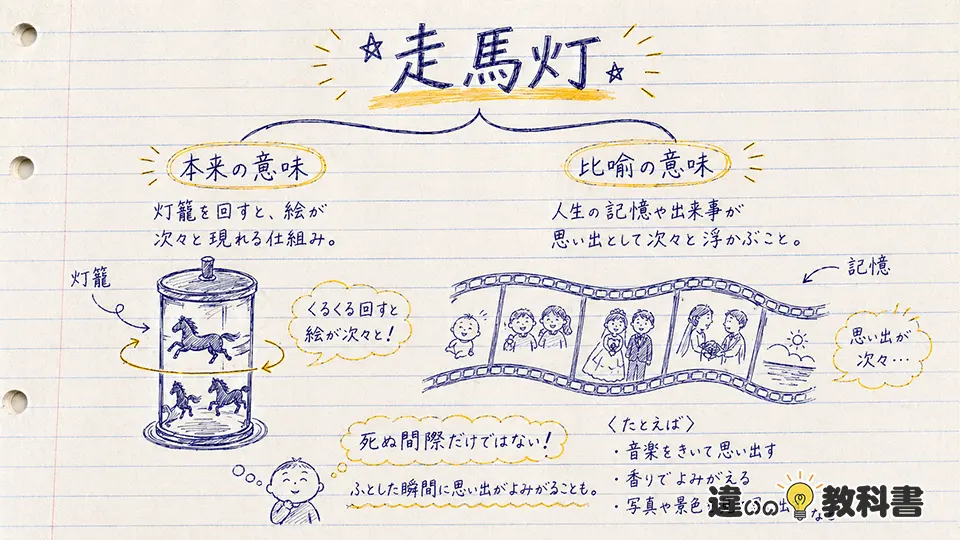 走馬灯
本来の意味
灯籠を回すと、絵が
次々と現れる仕組み。
灯籠
くるくる回すと
絵が次々と!
比喩の意味
人生の記憶や出来事が
思い出として次々と浮かぶこと。
記憶
思い出が
次々…
死ぬ間際だけではない!
ふとした瞬間に思い出がよみがることも。
〈たとえば〉
・音楽をきいて思い出す
・香りでよみがえる
・写真や景色
違いの教科書